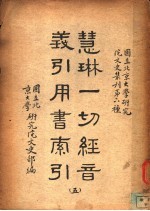 國立北京大學研究
院文史叢刊第六種
慧琳一切經音
義引用書索引
（五）
國立北
京大學研究院文史部編